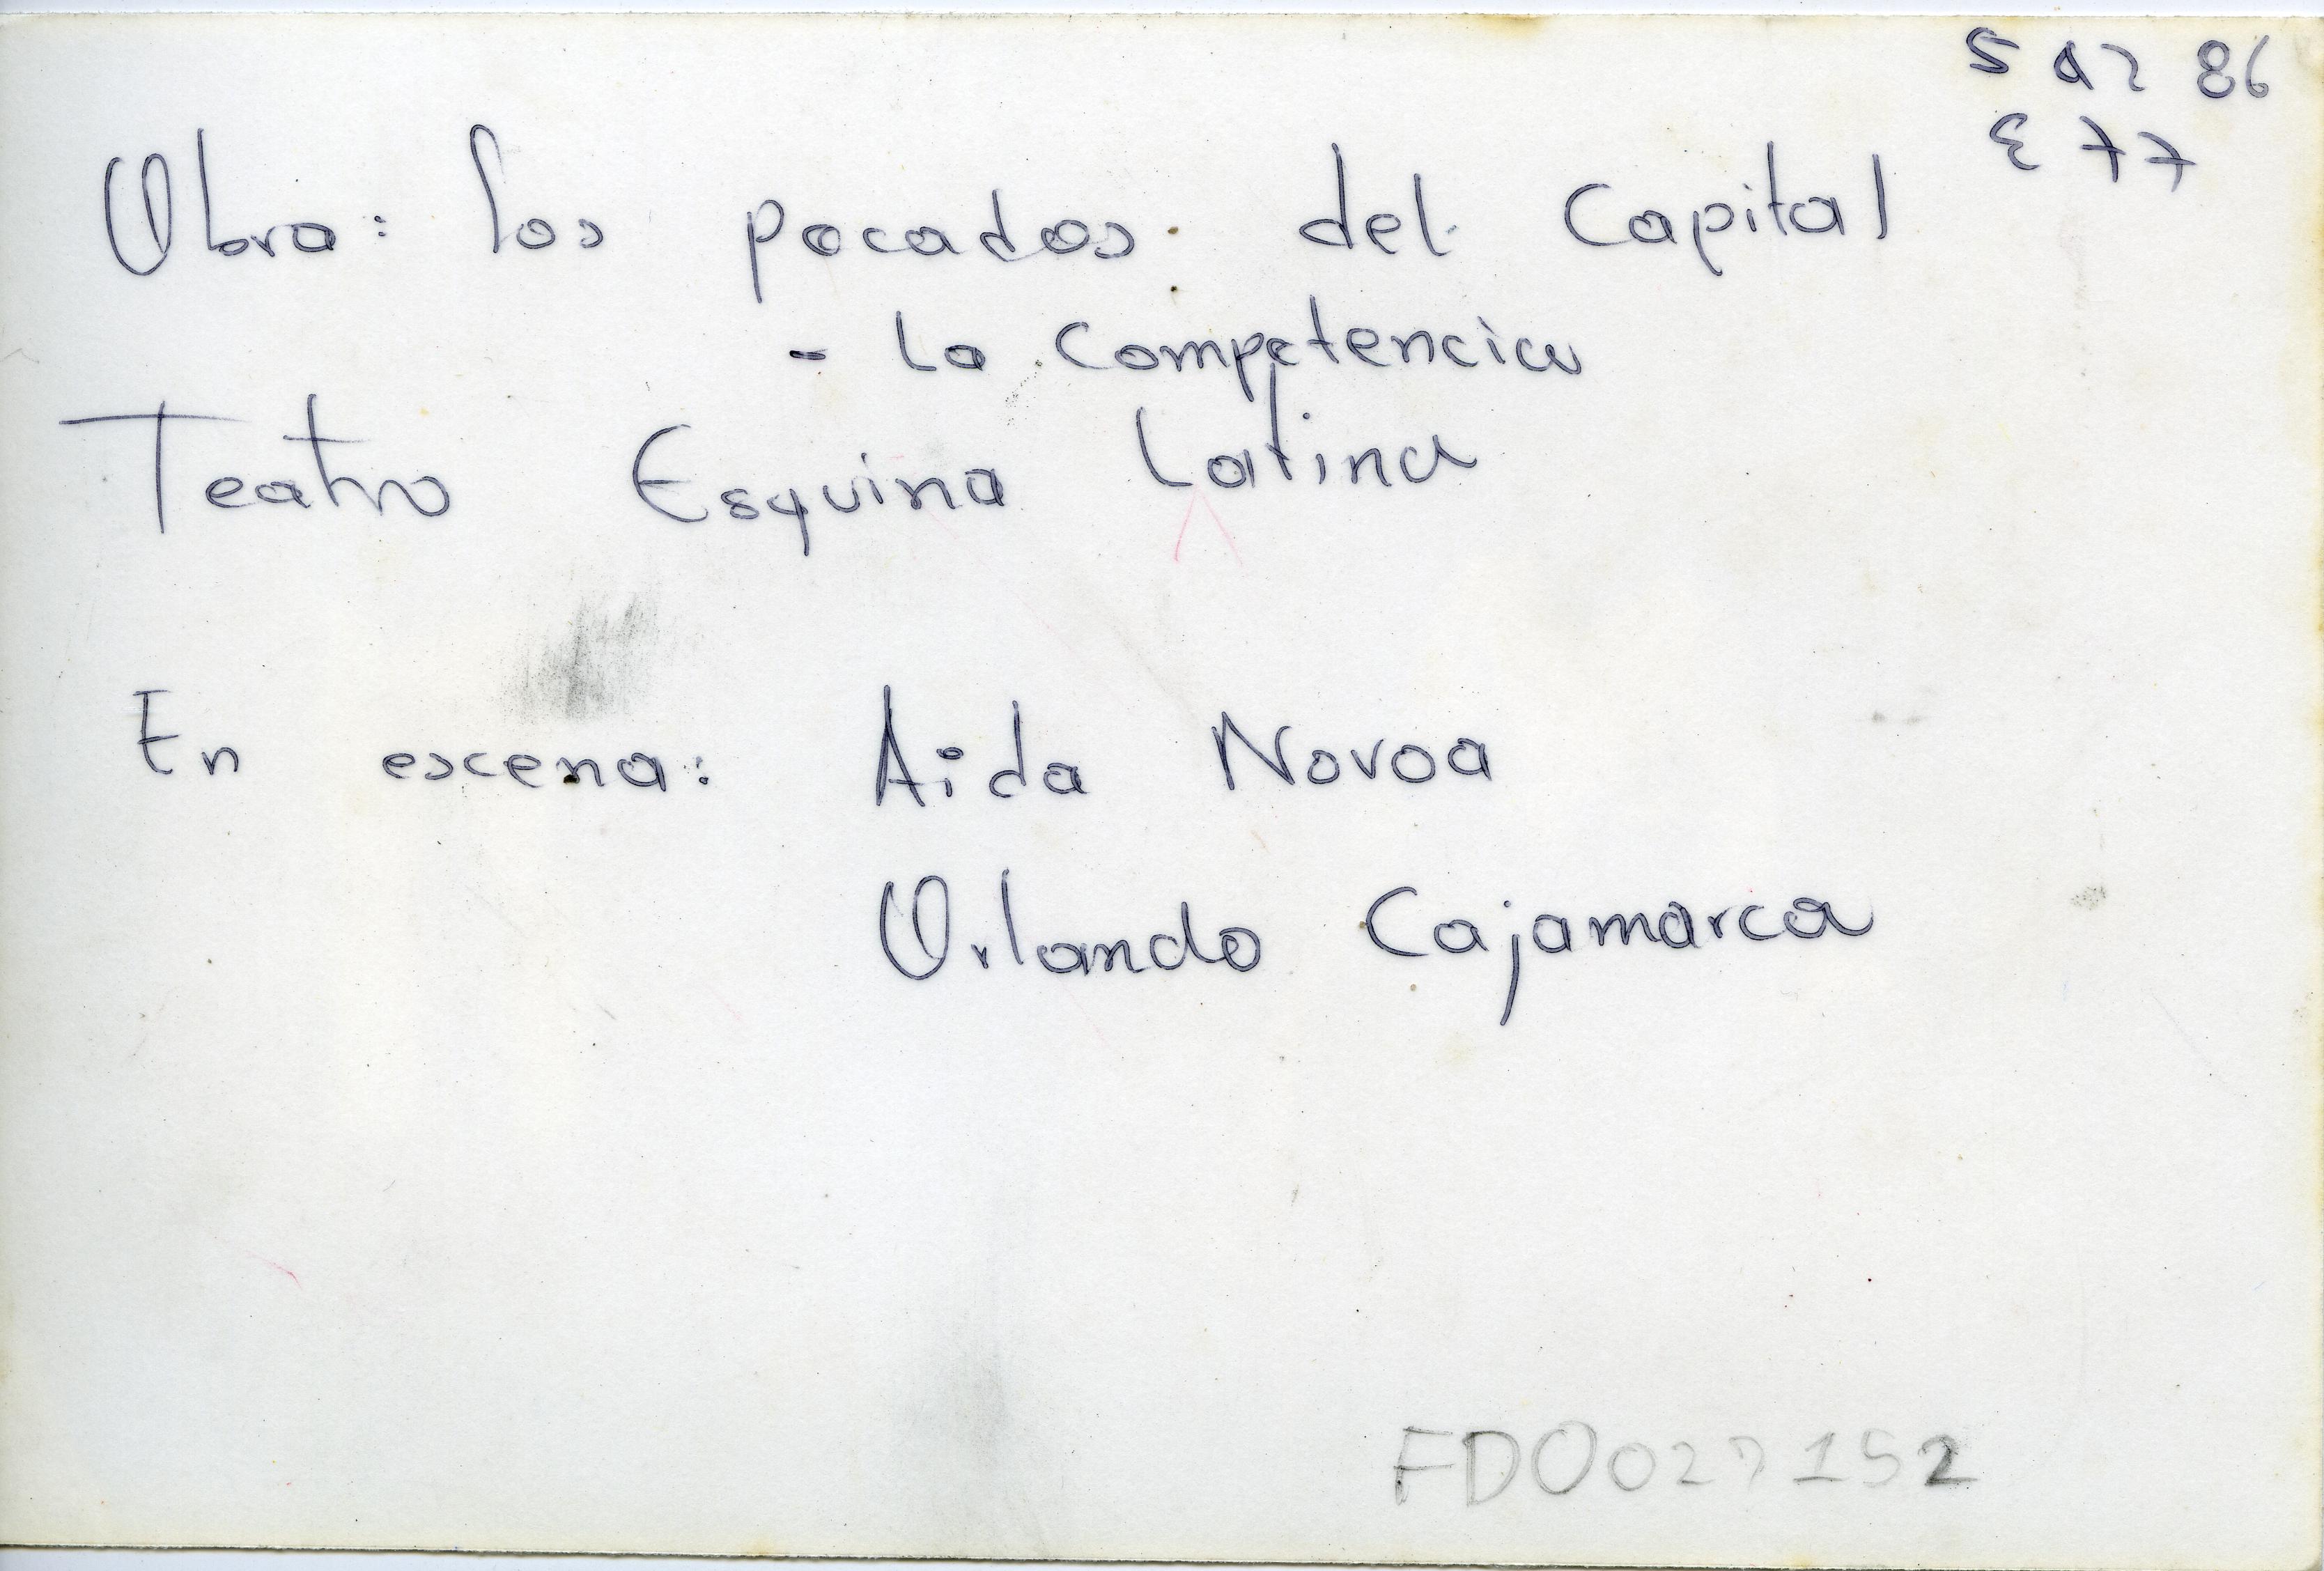 Obra: los pecados del Capital
- La Competencia
Teatro Esquina Latina
En escena: Aida Novoa
Orlando Cajamarca
86
E 77